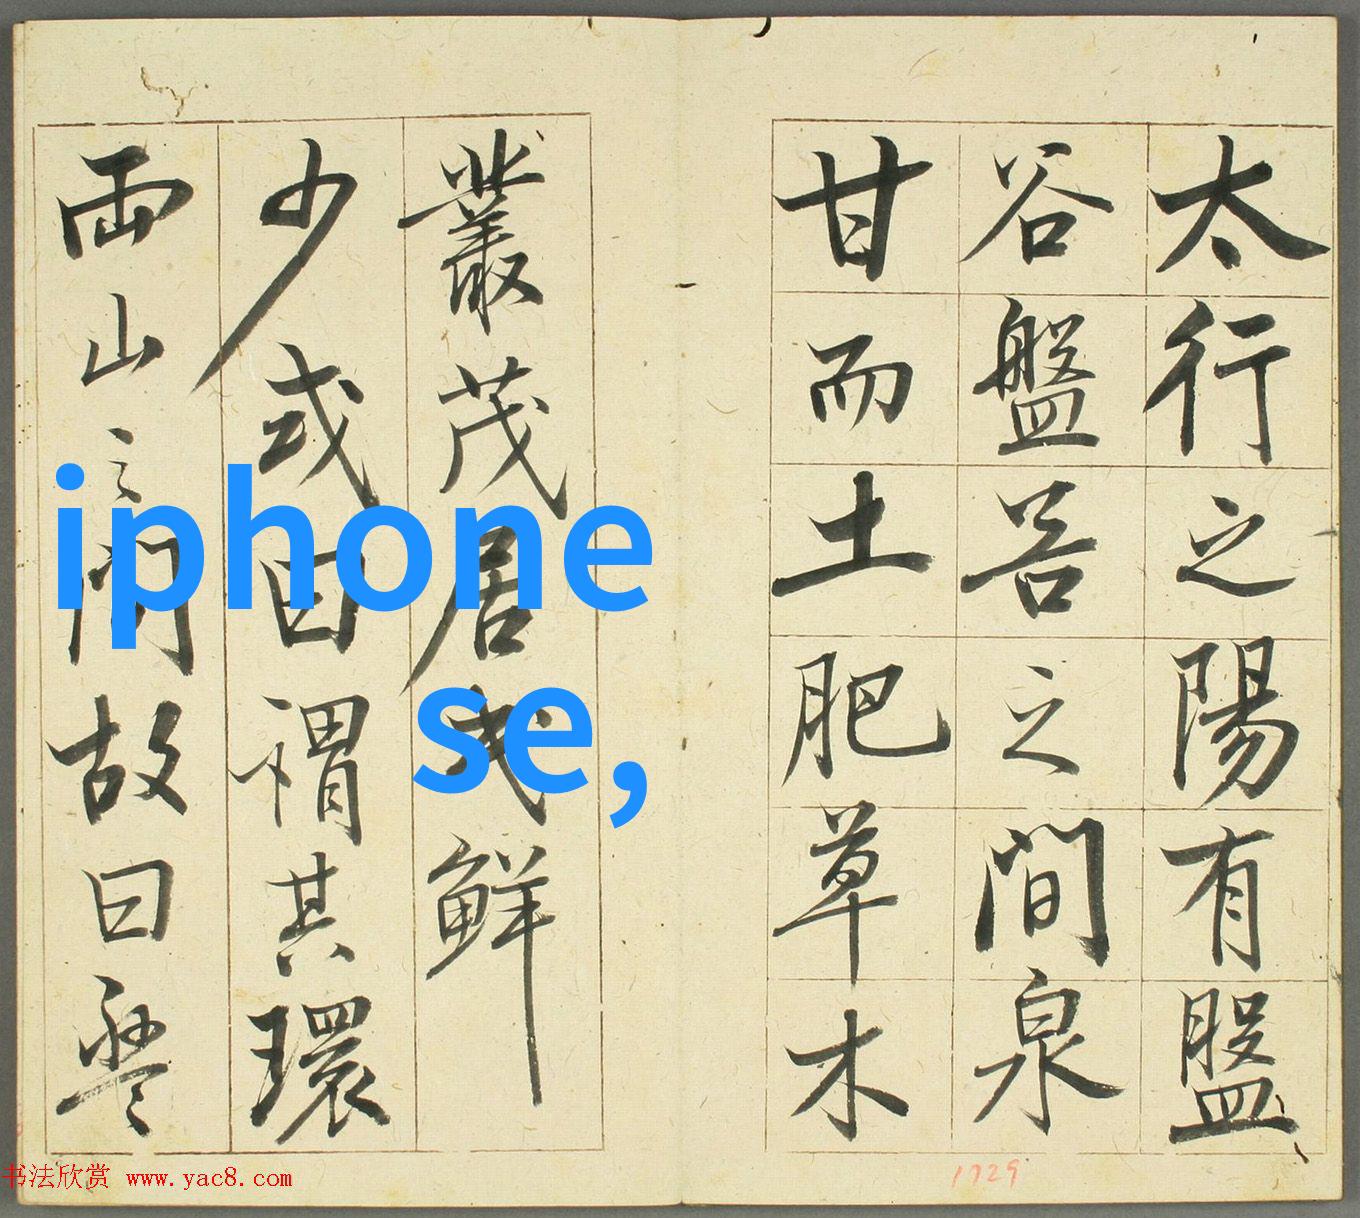 太行之陽有盤
谷盤谷之間泉
甘而土肥草木
叢茂居民鮮
少或曰謂其環
兩山之間故曰盤
iphone
se,
书法欣赏 www.yac8.com
1729